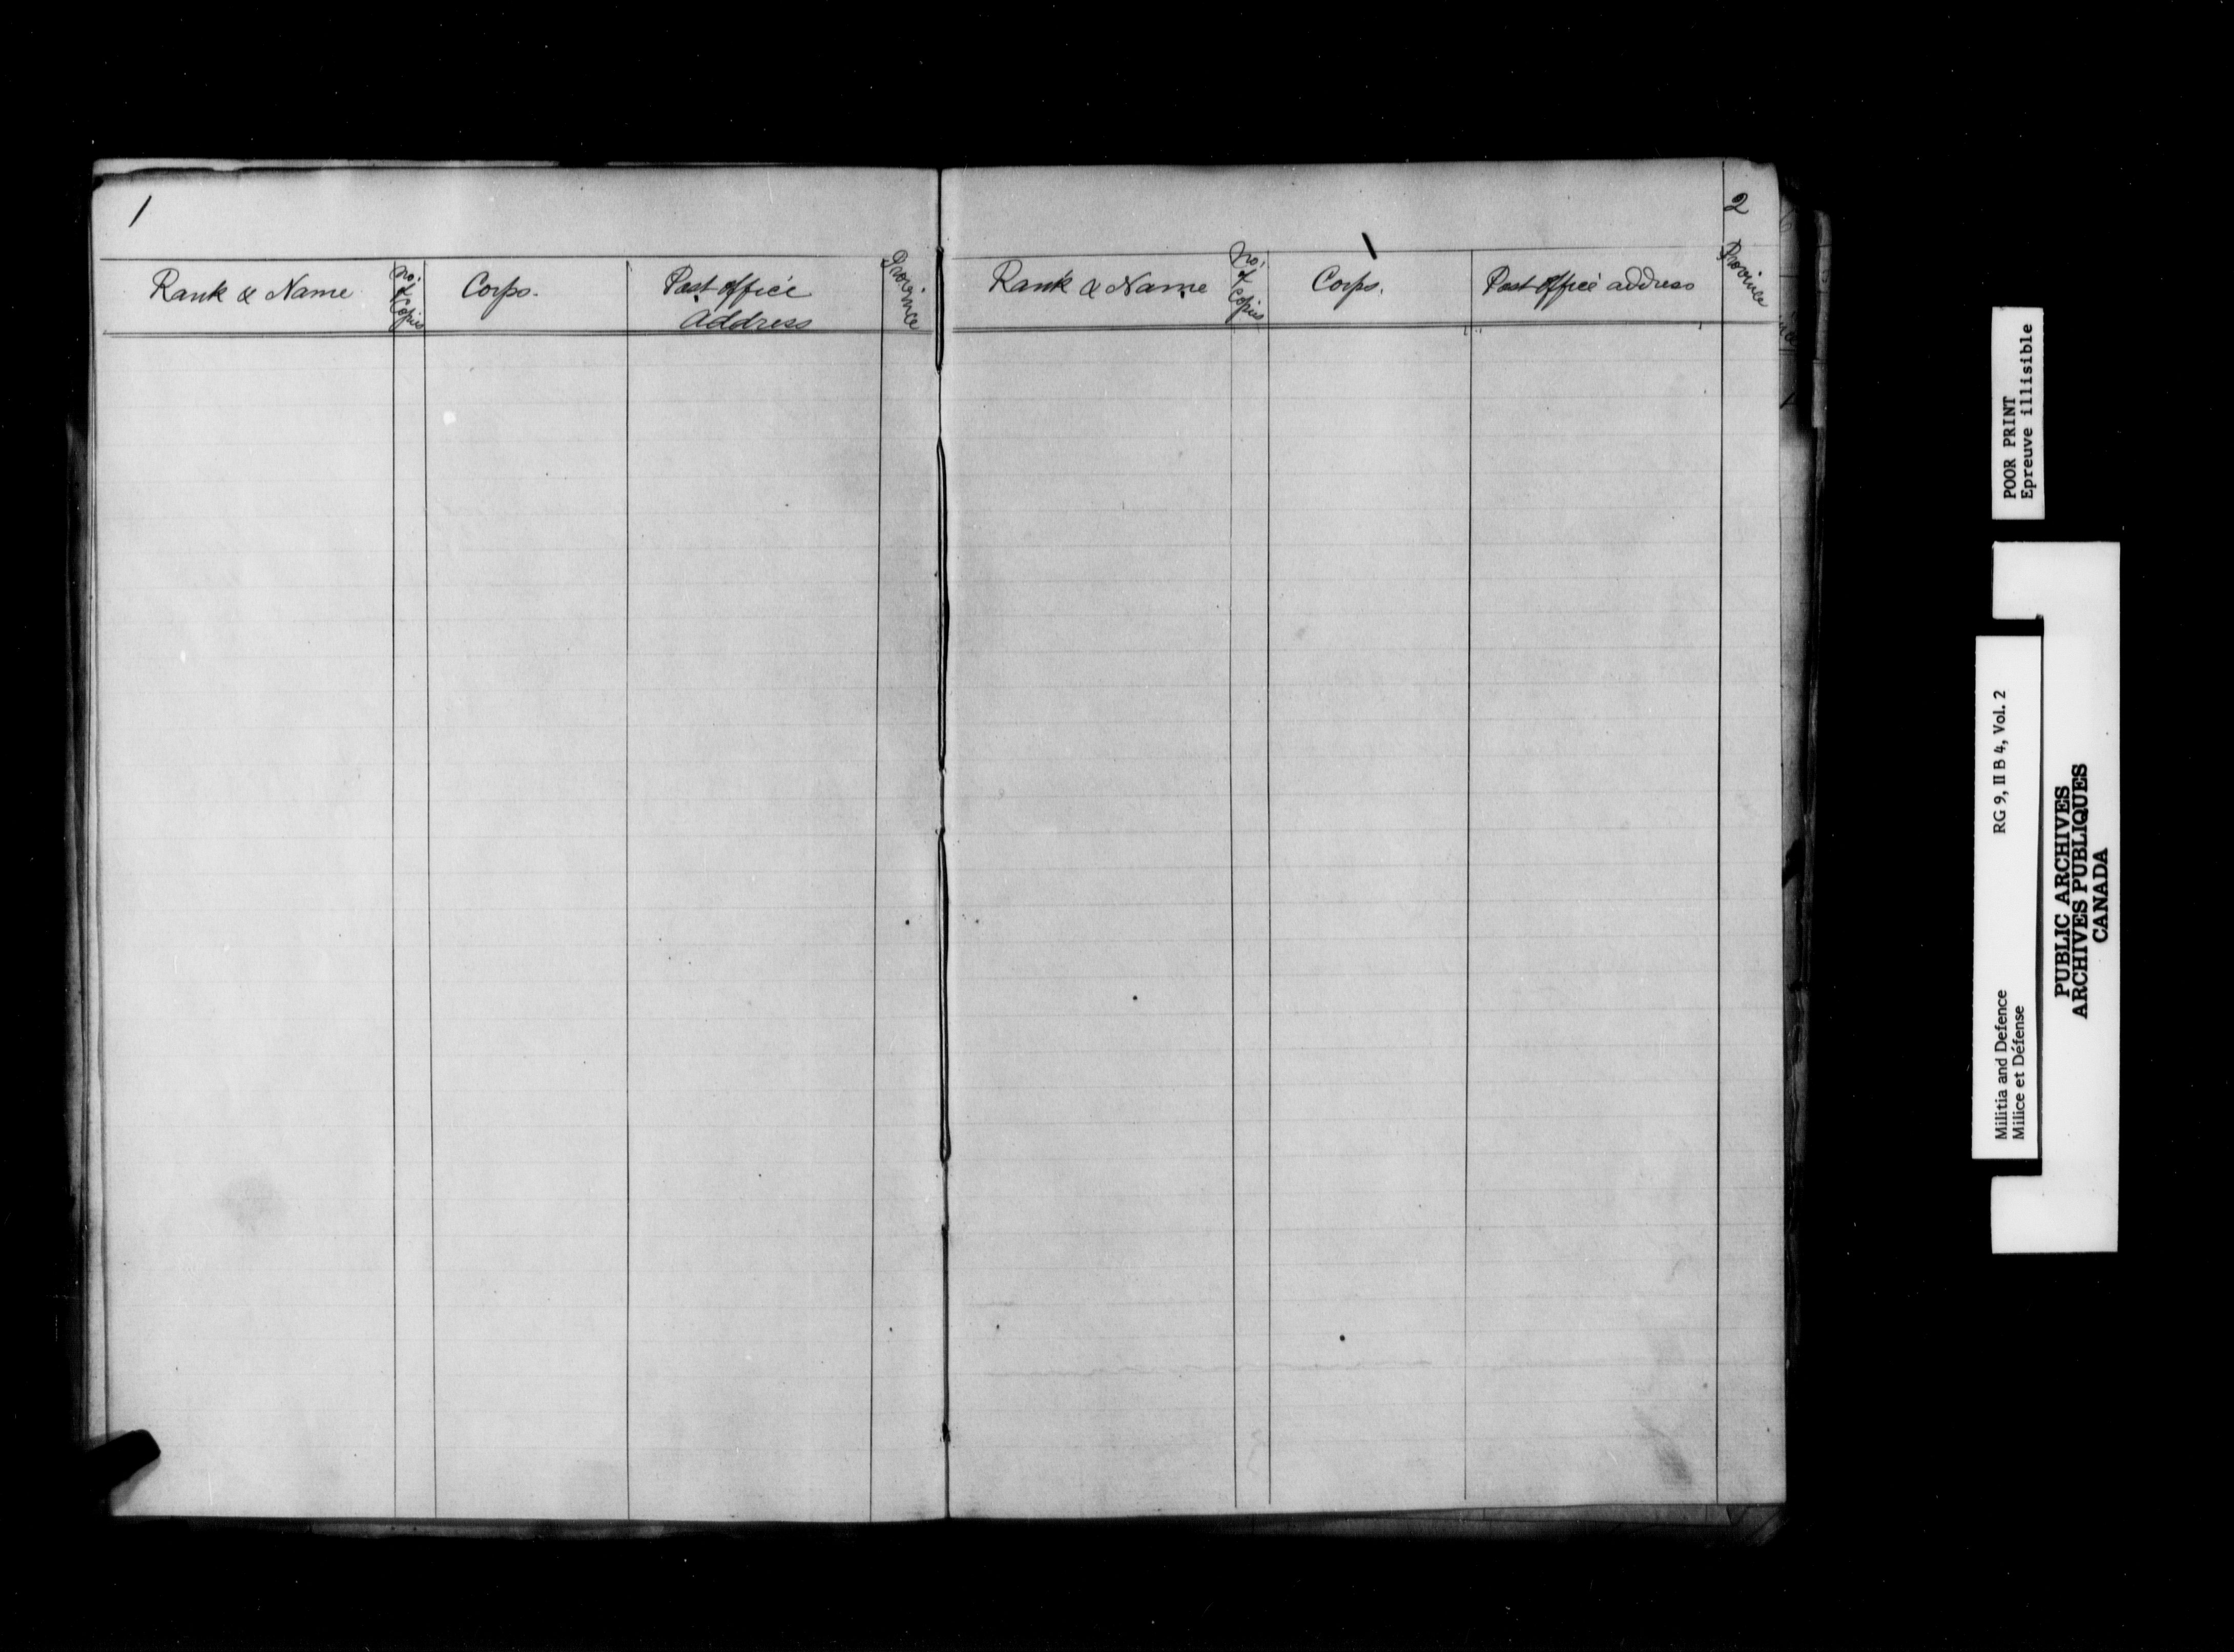 1
Rank & Name
No. of Copies
Corps.
Post Office
Address
Province
2
Rank & Name
No. of Copies
Corps.
Post Office address
Province
POOR PRINT
Epreuve illisible
Militia and Defence
Milice et Défense
RG 9, II B 4, Vol. 2
PUBLIC ARCHIVES
ARCHIVES PUBLIQUES
CANADA